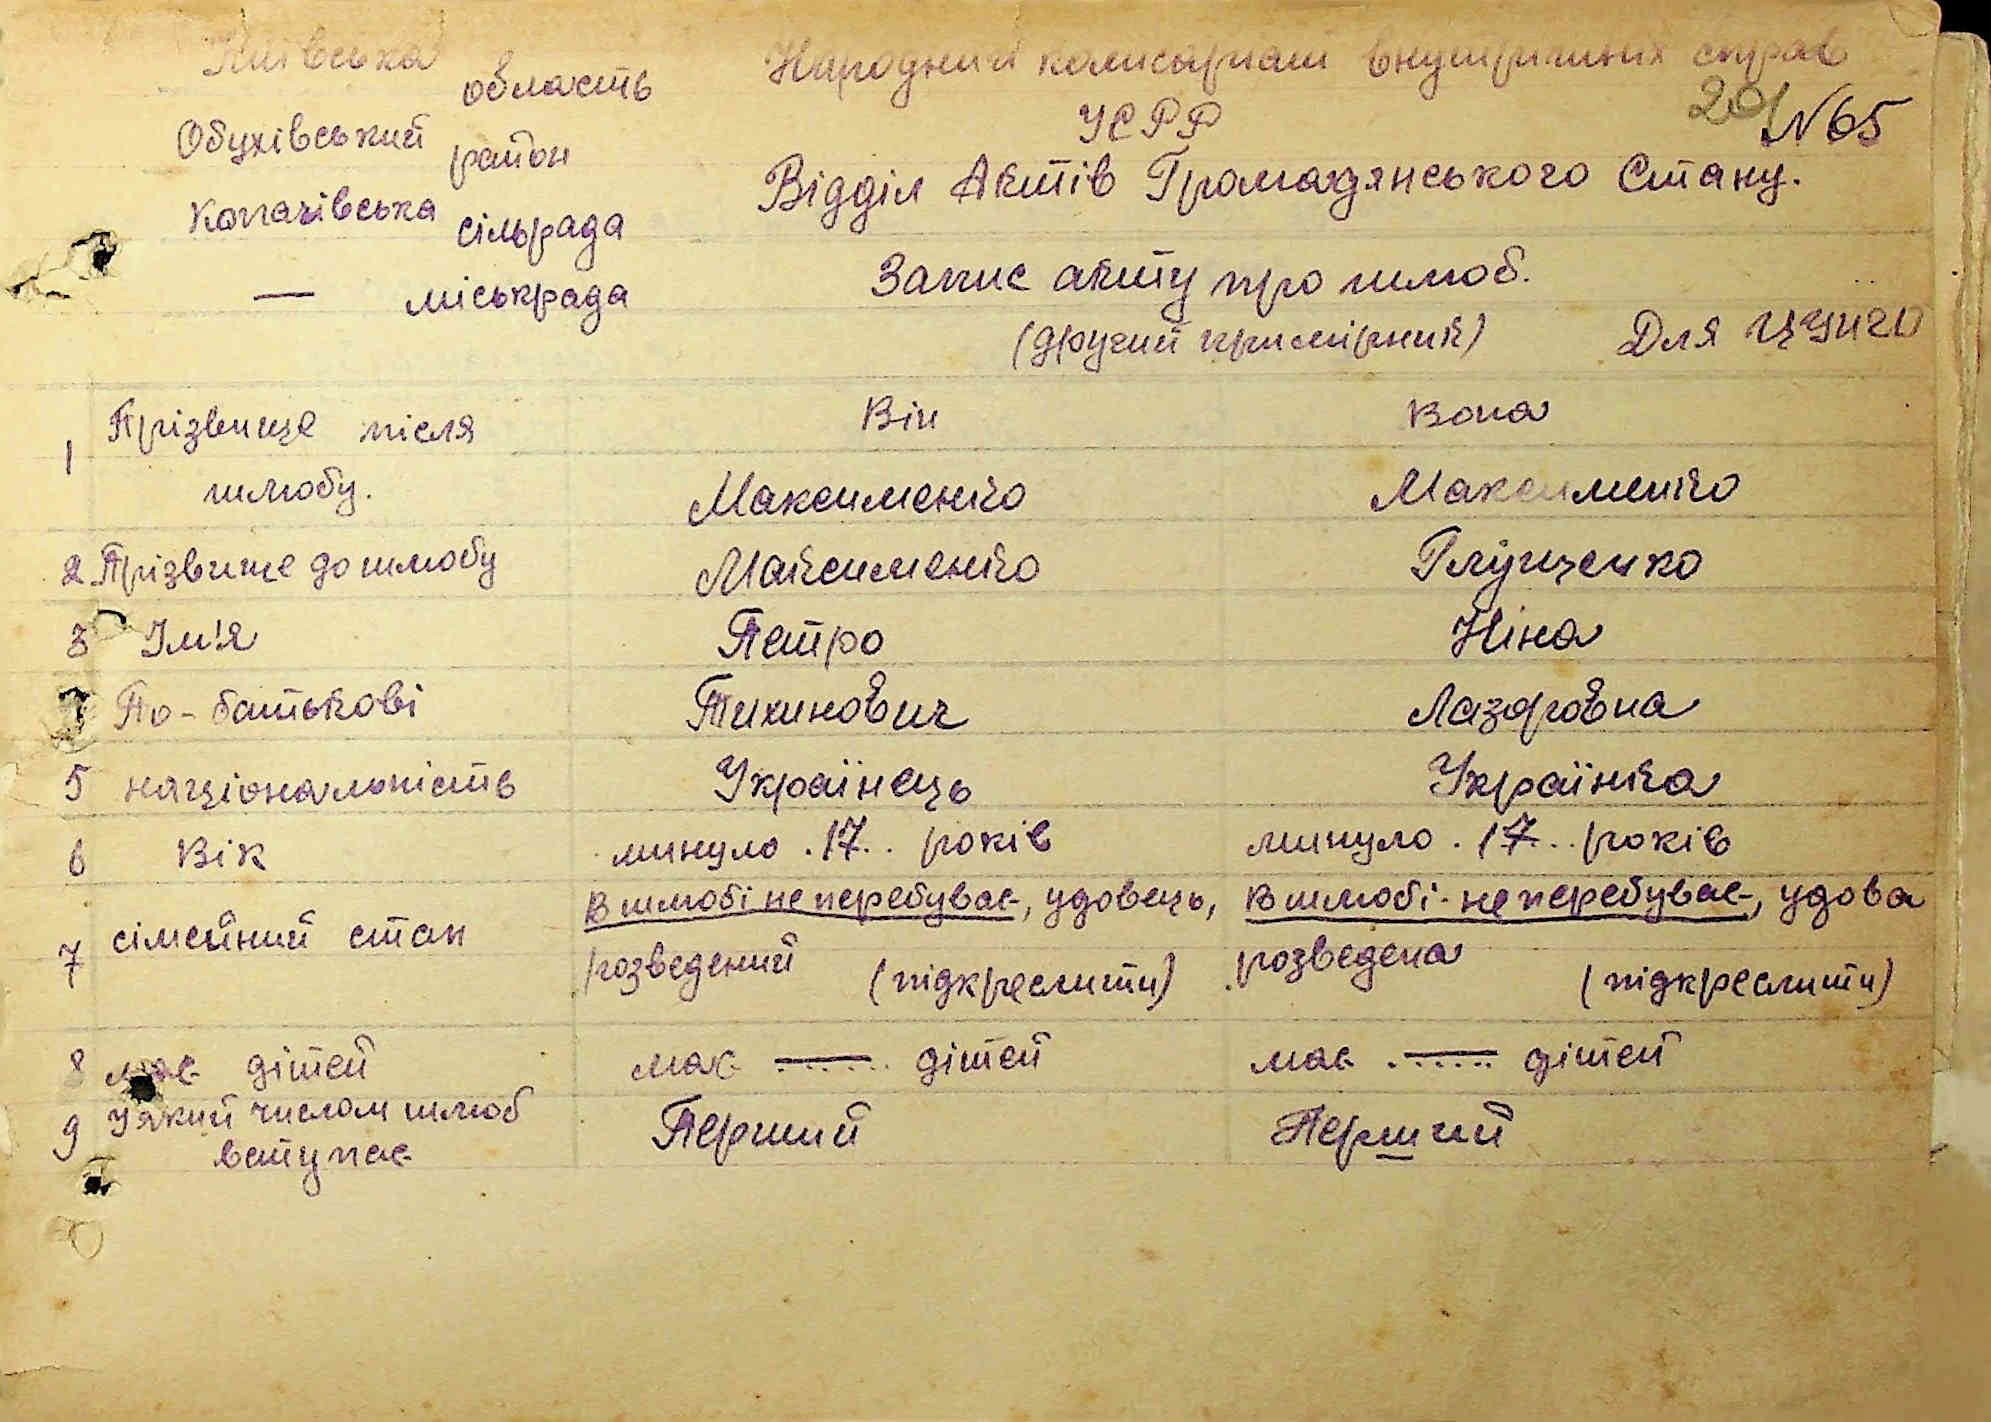 Київська область
Обухівський район
Копачівська сільрада
— міськрада
Народний комісаріат внутрішних справ
УСРР
20 N65
Відділ Актів Громадянського Стану.
Запис акту про шлюб.
(другий примірник) Для
Він Вона
1 Прізвище після шлюбу. Максименко Максименко
2 Прізвище до шлюбу Максименко Глущенко
3 Ім'я Петро Ніна
По-батькові Тихинович Лазоровна
5 національність Українець Українка
6 Вік минуло .17.. років минуло .17... років
7 сімейний стан В шлюбі не перебуває, удовець, В шлюбі не перебуває, удова
розведений (підкреслити) розведена (підкреслити)
8 має дітей має — дітей має — дітей
9 У який числом шлюб Перший Перший
вступає